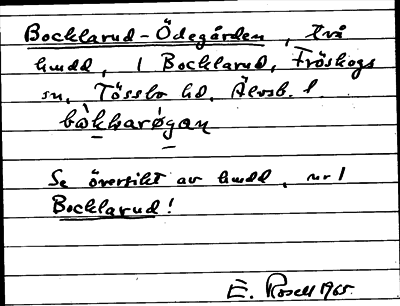 Bocklarud-Ödegården, två
hmdd, 1 Bocklarud, Fröskogs
sn, Tössbo hd, Älvsb. l.
bàkharø̀gan
Se översikt av hmdd, nr 1
Bocklarud!
E. Rosell 1965.